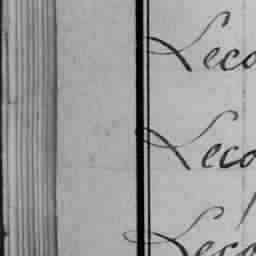 Leco
Leco
Leco